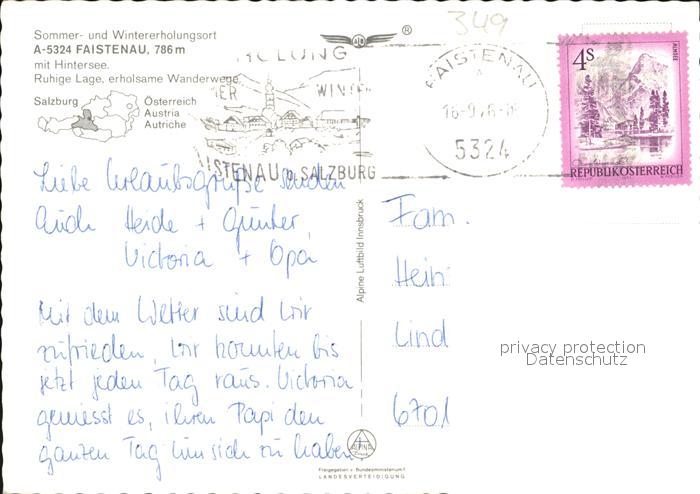 Sommer- und Wintererholungsort
A-5324 FAISTENAU, 786 m
mit Hintersee.
Ruhige Lage, erholsame Wanderwege
Salzburg
Österreich
Austria
Autriche
®
349
HOLUNG
WINTER
FAISTENAU b. SALZBURG
FAISTENAU
5324
4S
ALMSEE
REPUBLIK ÖSTERREICH
Liebe Urlaubsgrüße senden
Euch Heide + Günter,
Victoria + Opa
Mit dem Wetter sind wir
zufrieden, wir konnten bis
jetzt jeden Tag raus. Victoria
geniesst es, ihren Papi den
ganzen Tag um sich zu haben.
Alpine Luftbild Innsbruck
Fam.
Hein
Lind
6701
privacy protection
Datenschutz
ALPINE
Freigegeben v. Bundesministerium f.
LANDESVERTEIDIGUNG